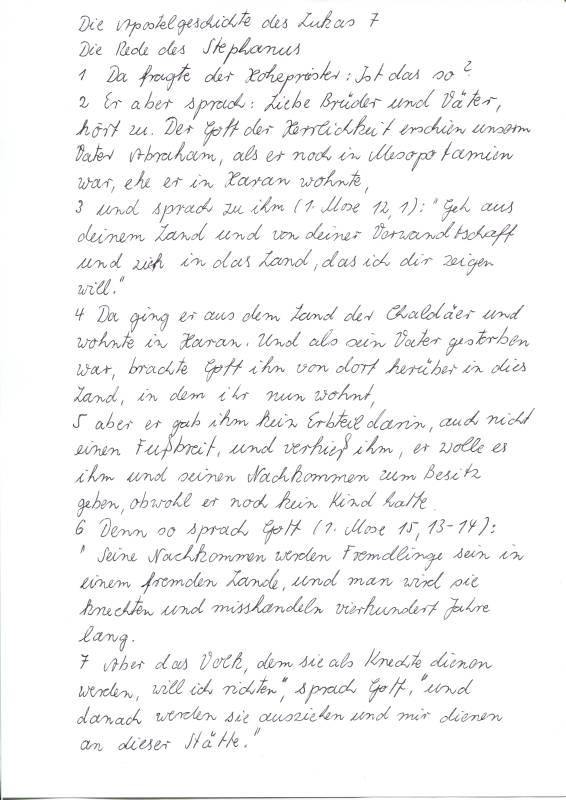 Die Apostelgeschichte des Lukas 7
Die Rede des Stephanus
1 Da fragte der Hohepriester: Ist das so?
2 Er aber sprach: Liebe Brüder und Väter,
hört zu. Der Gott der Herrlichkeit erschien unserm
Vater Abraham, als er noch in Mesopotamien
war, ehe er in Haran wohnte,
3 und sprach zu ihm (1. Mose 12,1): "Geh aus
deinem Land und von deiner Verwandtschaft
und zieh in das Land, das ich dir zeigen
will."
4 Da ging er aus dem Land der Chaldäer und
wohnte in Haran. Und als sein Vater gestorben
war, brachte Gott ihn von dort herüber in dies
Land, in dem ihr nun wohnt,
5 aber er gab ihm kein Erbteil darin, auch nicht
einen Fußbreit, und verhieß ihm, er wolle es
ihm und seinen Nachkommen zum Besitz
geben, obwohl er noch kein Kind hatte.
6 Denn so sprach Gott (1. Mose 15,13-14):
"Seine Nachkommen werden Fremdlinge sein in
einem fremden Lande, und man wird sie
knechten und misshandeln vierhundert Jahre
lang.
7 Aber das Volk, dem sie als Knechte dienen
werden, will ich richten", sprach Gott, "und
danach werden sie ausziehen und mir dienen
an dieser Stätte."